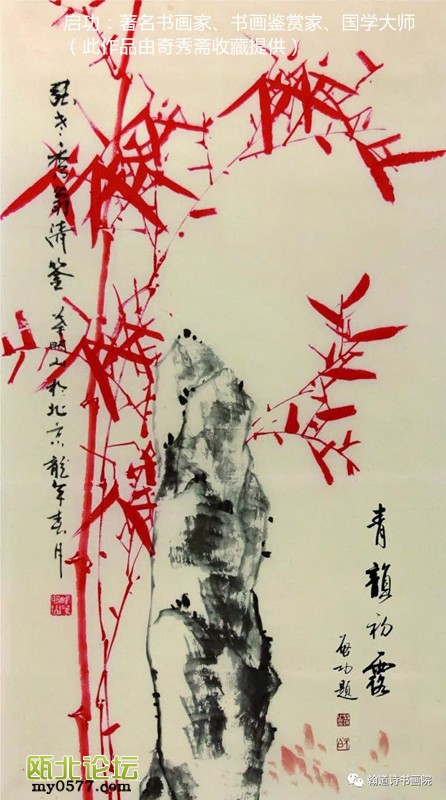 启功：著名书画家、书画鉴赏家、国学大师
（此作品由奇秀斋收藏提供）
秀翁清鉴
於北京龍年春月
青韻初露
啟功題
瓯北论坛
my0577.com
瀚道诗书画院